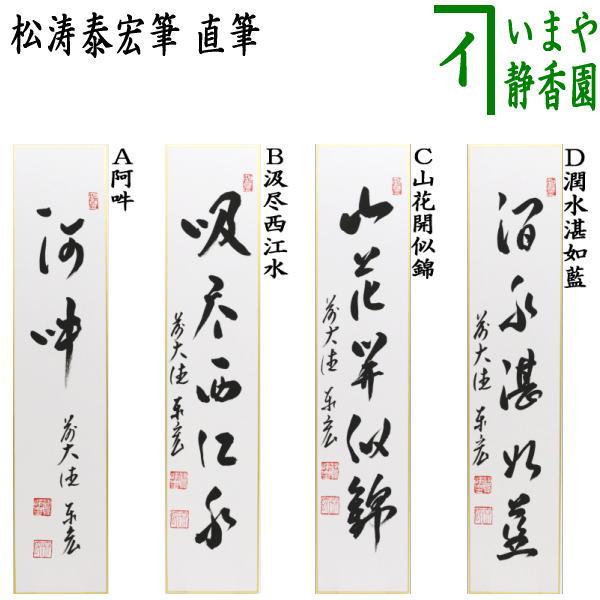 松涛泰宏筆 直筆
いまや
静香園
A阿吽
阿吽
前大徳 泰宏
B汲尽西江水
吸尽西江水
前大徳 泰宏
C山花開似錦
山花開似錦
前大徳 泰宏
D潤水湛如藍
澗水湛如藍
前大徳 泰宏